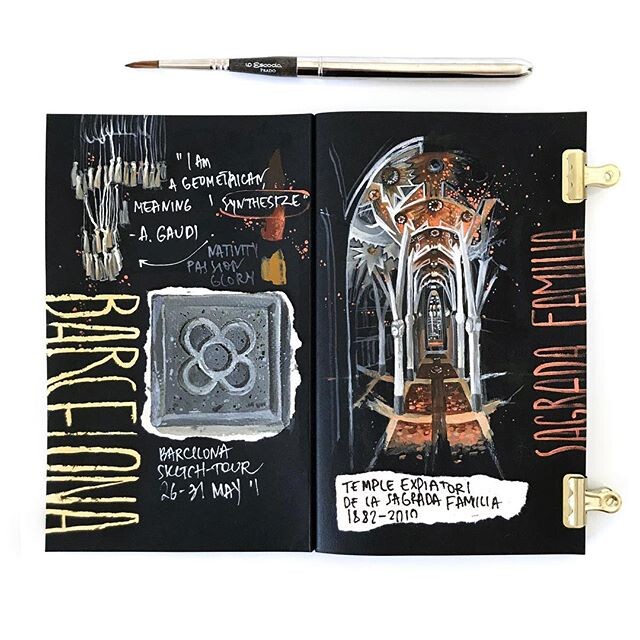 Escoda
PRADO
"I AM
A GEOMETRICAN,
MEANING I SYNTHESIZE
- A. GAUDI
NATIVITY
PASSION
GLORY
BARCELONA
BARCELONA
SKETCH-TOUR
26-31 MAY '1
SAGRADA FAMILIA
TEMPLE EXPIATORI
DE LA SAGRADA FAMILIA
1882-2010